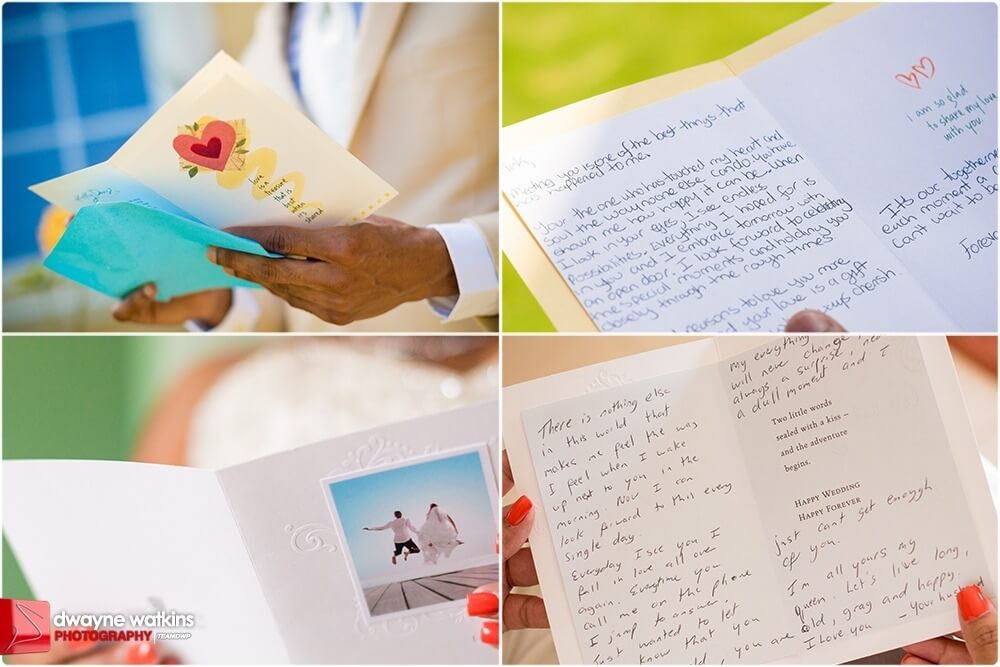 love is
a treasure
that is
best
when
it's
shared
Meeting you is one of the best things that
has happened to me.
Your the one who has touched my heart and
soul the way no one else can do. You have
shown me how happy it can be. When
I look in your eyes, I see endless
possibilities. Everything I hoped for is
in you and I embrace tomorrow with
an open door. I look forward to celebrating
the special moments and holding you
closely through the rough times
reasons to love you more
your love is a gift
cherish
I am so glad
to share my love
with you
It's our togetherness
each moment a
can't wait to be
Forever
dwayne watkins
PHOTOGRAPHY TEAMDWP
There is nothing else
in this world that
makes me feel the way
I feel when I wake
up next to you in the
morning. Now I can
look forward to this every
single day.
Everyday I see you I
fall in love all over
again. Everytime you
call me on the phone
I jump to answer. I
Just wanted to let
know that you
my everything
will never change
always a surprise
a dull moment and I
Two little words
sealed with a kiss –
and the adventure
begins.
HAPPY WEDDING
HAPPY FOREVER
just can't get enough
of you.
I'm all yours my
queen. Let's live long,
old, gray and happy.
I love you – your